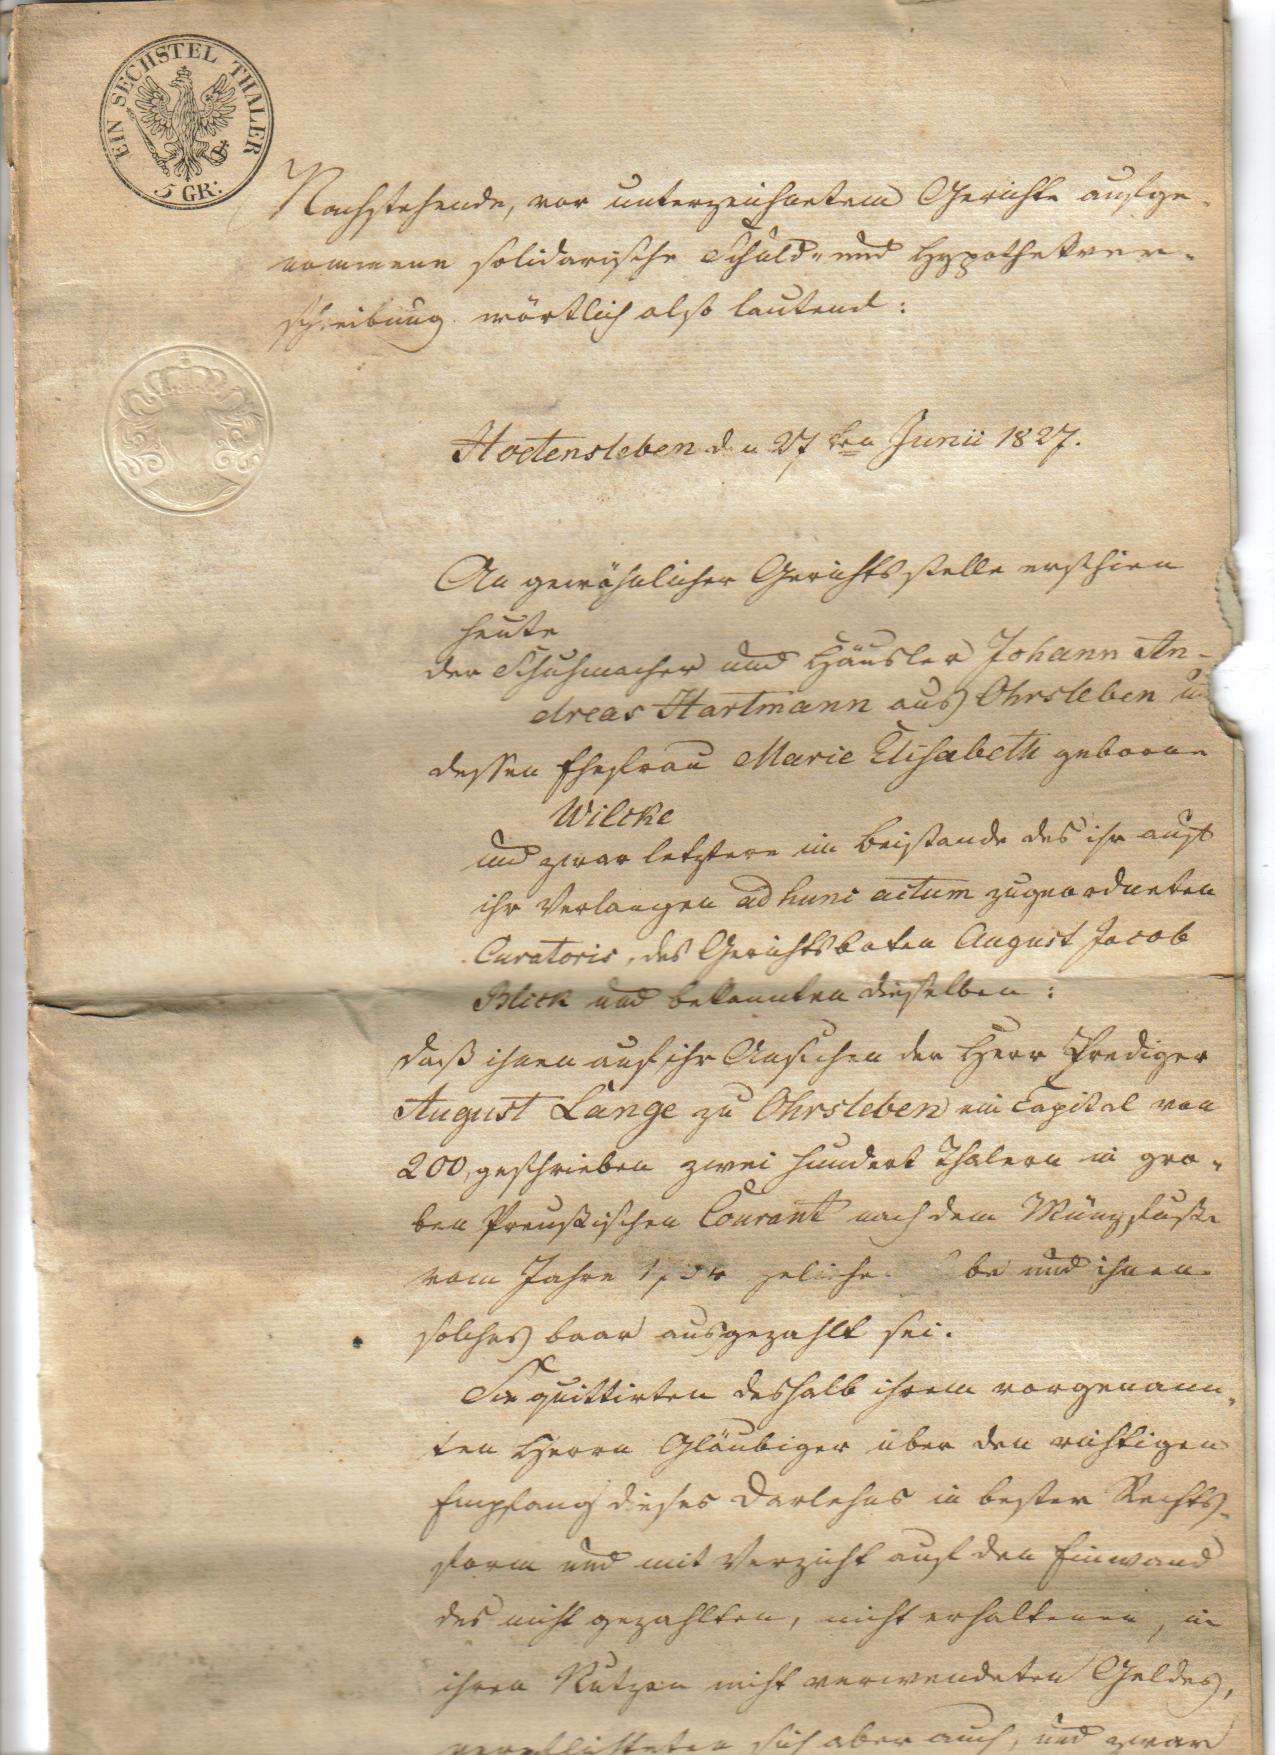 EIN SECHSTEL THALER
5 GR:
Nachstehende, vor unterzeichnetem Gerichte aufge-
nommene solidarische Schuld- und Hypothekver-
schreibung wörtlich also lautend:
Hoetensleben den 27ten Junii 1827.
An gewöhnlicher Gerichtsstelle erschien
heute
der Schuhmacher und Häusler Johann An-
dreas Hartmann aus Ohrsleben und
dessen Ehefrau Marie Elisabeth geborne
Wilcke
und zwar letztere im Beistande des ihr auf
ihr Verlangen ad hunc actum zugeordneten
Curatoris, des Gerichtsboten August Jacob
Blick und bekannten dieselben:
daß ihnen auf ihr Ansuchen der Herr Prediger
August Lange zu Ohrsleben ein Capital von
200, geschrieben zwei hundert Thalern in gro-
ben Preußischen Courant nach dem Münzfuße
vom Jahre und ihnen
solches baar ausgezahlt sei.
Sie quittirten deshalb ihrem vorgenann-
ten Herrn Gläubiger über den richtigen
Empfang dieses Darlehns in bester Rechts-
form und mit Verzicht auf den Einwand
des nicht gezahlten, nicht erhaltenen, in
ihren Nutzen nicht verwendeten Geldes,
verpflichteten sich aber auch, und zwar